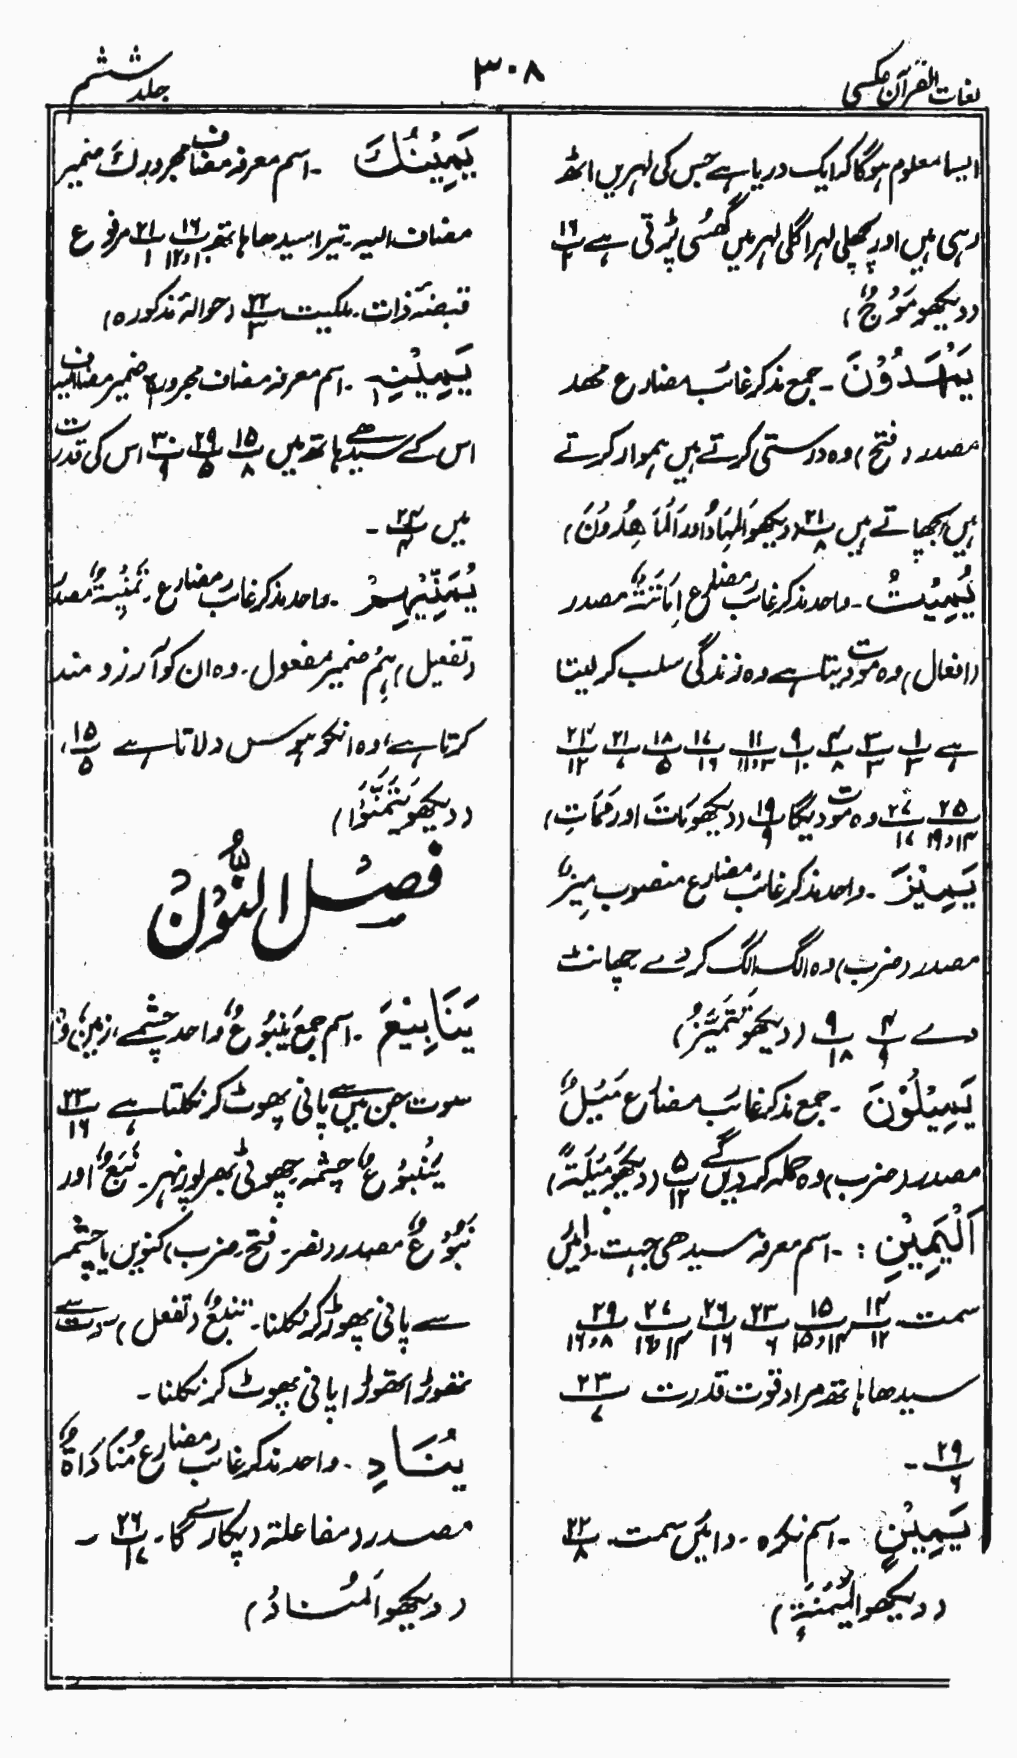 لغات القرآن عکسی
۳۰۸
جلد ششم
ایسا معلوم ہوگا کہ ایک دریا ہے جس کی لہریں اٹھ
رہی ہیں اور پچھلی لہر اگلی لہر میں گھسی پڑتی ہے ۱۶/۲
(دیکھو مَوْجٌ)
یَمْهَدُوْنَ ۔ جمع مذکر غائب مضارع مھد
مصدر (فتح) وہ درستی کرتے ہیں ہموار کرتے
ہیں بچھاتے ہیں ۲۱/۸ (دیکھو اَلْمِهَادُ اور اَلْمَاهِدُوْنَ)
یُمِیْتُ ۔ واحد مذکر غائب مضارع اِمَاتَتٌ مصدر
(افعال) وہ موت دیتا ہے وہ زندگی سلب کر لیتا
ہے ۱/۳ ۳/۳ ۴/۸ ۹/۱۰ ۱۱/۳و۱۱ ۱۷/۱۶ ۱۸/۵ ۲۱/۷ ۲۴/۱۲
۲۵/۱۴و۱۹ ۲۷/۱۷ وہ موت دیگا ۱۹/۹ (دیکھو مَاتَ اور مَمَاتِ)
یَمِیْزَ ۔ واحد مذکر غائب مضارع منصوب مَیْزٌ
مصدر (ضرب) وہ الگ الگ کر دے چھانٹ
دے ۴/۹ ۹/۱۸ (دیکھو تَمَیَّزُ)
یَمِیْلُوْنَ ۔ جمع مذکر غائب مضارع مَیْلٌ
مصدر (ضرب) وہ حملہ کر دیں گے ۵/۱۲ (دیکھو مَیْلَةً)
اَلْیَمِیْنِ : ۔ اسم معرفہ سیدھی جہت ۔ دائیں
سمت ۔ ۱۴/۱۲ ۱۵/۱۴و۱۵ ۲۳/۶ ۲۶/۱۶ ۲۷/۱۴و۱۶ ۲۹/۸و۱۶
سیدھا ہاتھ مراد قوت قدرت ۲۳/۷
۲۹/۶ ۔
یَمِیْنٍ ۔ اسم نکرہ ۔ دائیں سمت ۔ ۲۲/۸
(دیکھو الْیُمْنَةِ)
یَمِیْنُكَ ۔ اسم معرفہ مضاف مجرور ك ضمیر
مضاف الیہ ۔ تیرا سیدھا ہاتھ ۱۶/۱۰و۱۲ ۲۱/۱ مرفوع
قبضۂ ذات ۔ ملکیت ۲۲/۳ (حوالۂ مذکورہ)
یَمِیْنِہٖ ۔ اسم معرفہ مضاف مجرور ہٖ ضمیر مضاف الیہ
اس کے سیدھے ہاتھ میں ۱۵/۸ ۲۹/۵ ۳۰/۹ اس کی قدرت
میں ۲۴/۴ ۔
یُمَنِّیْهِمْ ۔ واحد مذکر غائب مضارع ۔ تَمْنِیَةٌ مصدر
(تفعیل) ہِمْ ضمیر مفعول ۔ وہ ان کو آرزو مند
کرتا ہے، وہ انکو ہوس دلاتا ہے ۱۵/۵ ،
(دیکھو یَتَمَنَّوْا)
فصل النُّوْن
یَنَابِیْعَ ۔ اسم جمع یَنْبُوْعٌ واحد چشمے، زمین وَ
سوت جن میں سے پانی پھوٹ کر نکلتا ہے ۲۳/۱۶
یَنْبُوْعٌ چشمہ چھوٹی بھرپور نہر ۔ نَبْعٌ اور
نُبُوْعٌ مصدر (نصر ۔ فتح ۔ ضرب) کنویں یا چشمہ
سے پانی پھوڑ کر نکلنا ۔ تَنَبُّعٌ (تفعل) سوت سے
تھوڑا تھوڑا پانی پھوٹ کر نکلنا ۔
یُنَادِ ۔ واحد مذکر غائب مضارع مُنَادَاةٌ
مصدر (مفاعلة) پکارے گا ۔ ۲۶/۱۷ ۔
(دیکھو اَلْمُنَادُ)